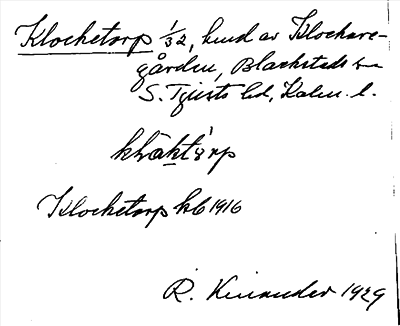 Klocketorp 1/32, hmd av Klockare-
gården, Blackstads sn
S. Tjusts hd, Kalm. l.
Klocketorp kb 1916
R. Kinander 1929